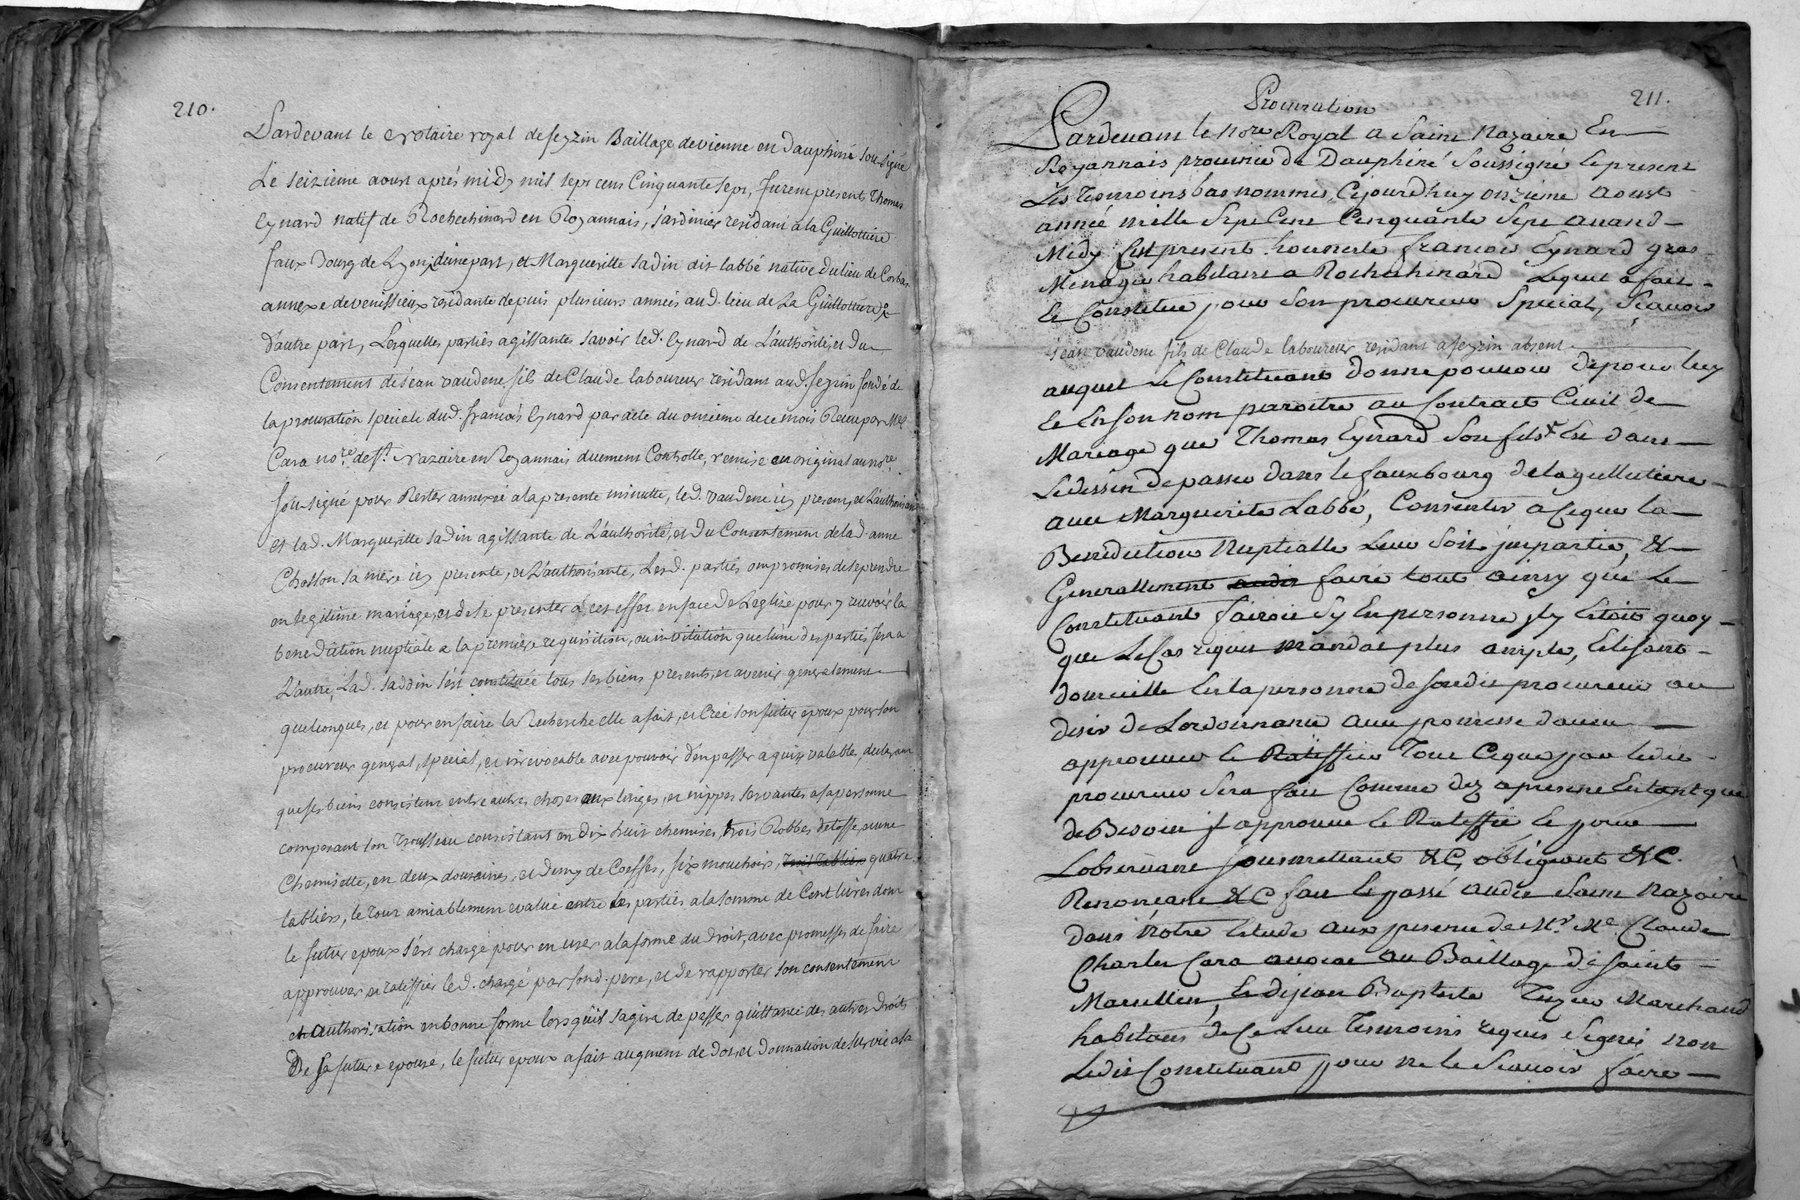 210.
Pardevant le Notaire royal de feyzin Baillage devienne en dauphiné sousigné
Le seizieme aoust aprés midy mil sept cens Cinquante sept, furent present Thomas
Eynard natif de Rochechinard en Royannais, jardinier residant a la Guillottiere
faux bourg de Lyon, d'une part, et Margueritte sadin dit labbé native du lieu de Corbas
annexe de venissieux residante depuis plusieurs années aud. lieu de La Guillottiere
d'autre part, Lesquelles parties agissantes savoir led. Eynard de L'authorité, et du
Consentement de jean vaudene fils de Claude laboureur residant aud. feyzin fondé de
la procuration speciale dud. francois Eynard par acte du onzieme de ce mois Receu par Me
Cara nore. de st. Nazaire en Royannais duement Controllé, remise en original au nore.
sousigné pour Rester annexée a la presente minutte, led. vaudene icy present, et L'authorisant
et lad. Margueritte sadin agissante de L'authorité, et du Consentement de lad. anne
Chollon sa mere icy presente, et L'authorisante, Lesd. parties ont promises de se prendre
en legitime mariage, et de se presenter a cet effet en face de L'eglise pour y recevoir la
benediction nuptiale a la premiere requisition, ou invitation que l'une des parties fera a
L'autre, Lad. saddin s'est constituée tous ses biens presents, et avenir generalement
quelconques, et pour en faire la Recherche elle a fait, et Créé son futur epoux pour son
procureur general, special, et irrevocable avec pouvoir d'en passer aquis valable, declarant
que ses biens consistent entre autres choses aux linges, et nippes servantes a sa personne
composant son Trousseau consistant en dix huit chemises, trois Robbes d'etoffe, et une
Chemisette, en deux douzaines, et demy de Coeffes, six mouchoirs, trois tabliers quatre
tabliers, le tout amiablement evalué entre les parties a la somme de Cent livres dont
le futur epoux s'est chargé pour en user a la forme du droit, avec promesses de faire
approuver et ratiffier led. chargé par sond. pere, et de rapporter son consentement
et authorisation en bonne forme lorsqu'il sagira de passer quittance des autres droits
De sa future epouse, le futur epoux a fait augment de dot, et donnation de survie a la
211.
Procuration
Pardevant le nore Royal a Saint Nazaire En
Royannais province de Dauphiné Soussigné Et present
Les Temoins bas nommés, Cejourd'huy onzieme aoust
année mille Sept Cent Cinquante Sept avant
Midy Est present honneste francois Eynard gros
Menager habitant a Rochechinard Lequel a fait
Et Constitué pour Son procureur Special, Sçavoir
jean vaudene fils de Claude laboureur residant a feyzin absent
auquel Le Constituant donne pouvoir de pour luy
Et En son nom paroitre au Contract Civil de
Mariage que Thomas Eynard Son fils Est dans
Le dessein de passer dans le fauxbourg de la gulliotiere
avec Marguerite Labbé, Consentir a Ce que la
Benediction Nuptialle Leur Soit impartie, &
Generallement faire tout ainsy que Le
Constituant fairoit Sy En personne y Estoit quoy
que Le Cas requit mandat plus ample, Elisant
domicille En la personne de son dit procureur au
desir de Lordonnance avec promesse d'avoir
approuver et Ratiffier Tout Ceque par ledit
procureur Sera fait Comme dez a present En tant que
de Besoin Il approuve et Ratiffie Et pour
Lobservance Soumettant &C, obligeant &C.
Renonceant &C fait Et passé audit Saint Nazaire
dans Notre Etude aux presences de Mr. Me. Claude
Charles Cara avocat au Baillage de Saint
Marcellin, Et de jean Baptiste Marchand
habitans de Ce Lieu Temoins requis Signés non
Ledit Constituant pour ne le Sçavoir faire